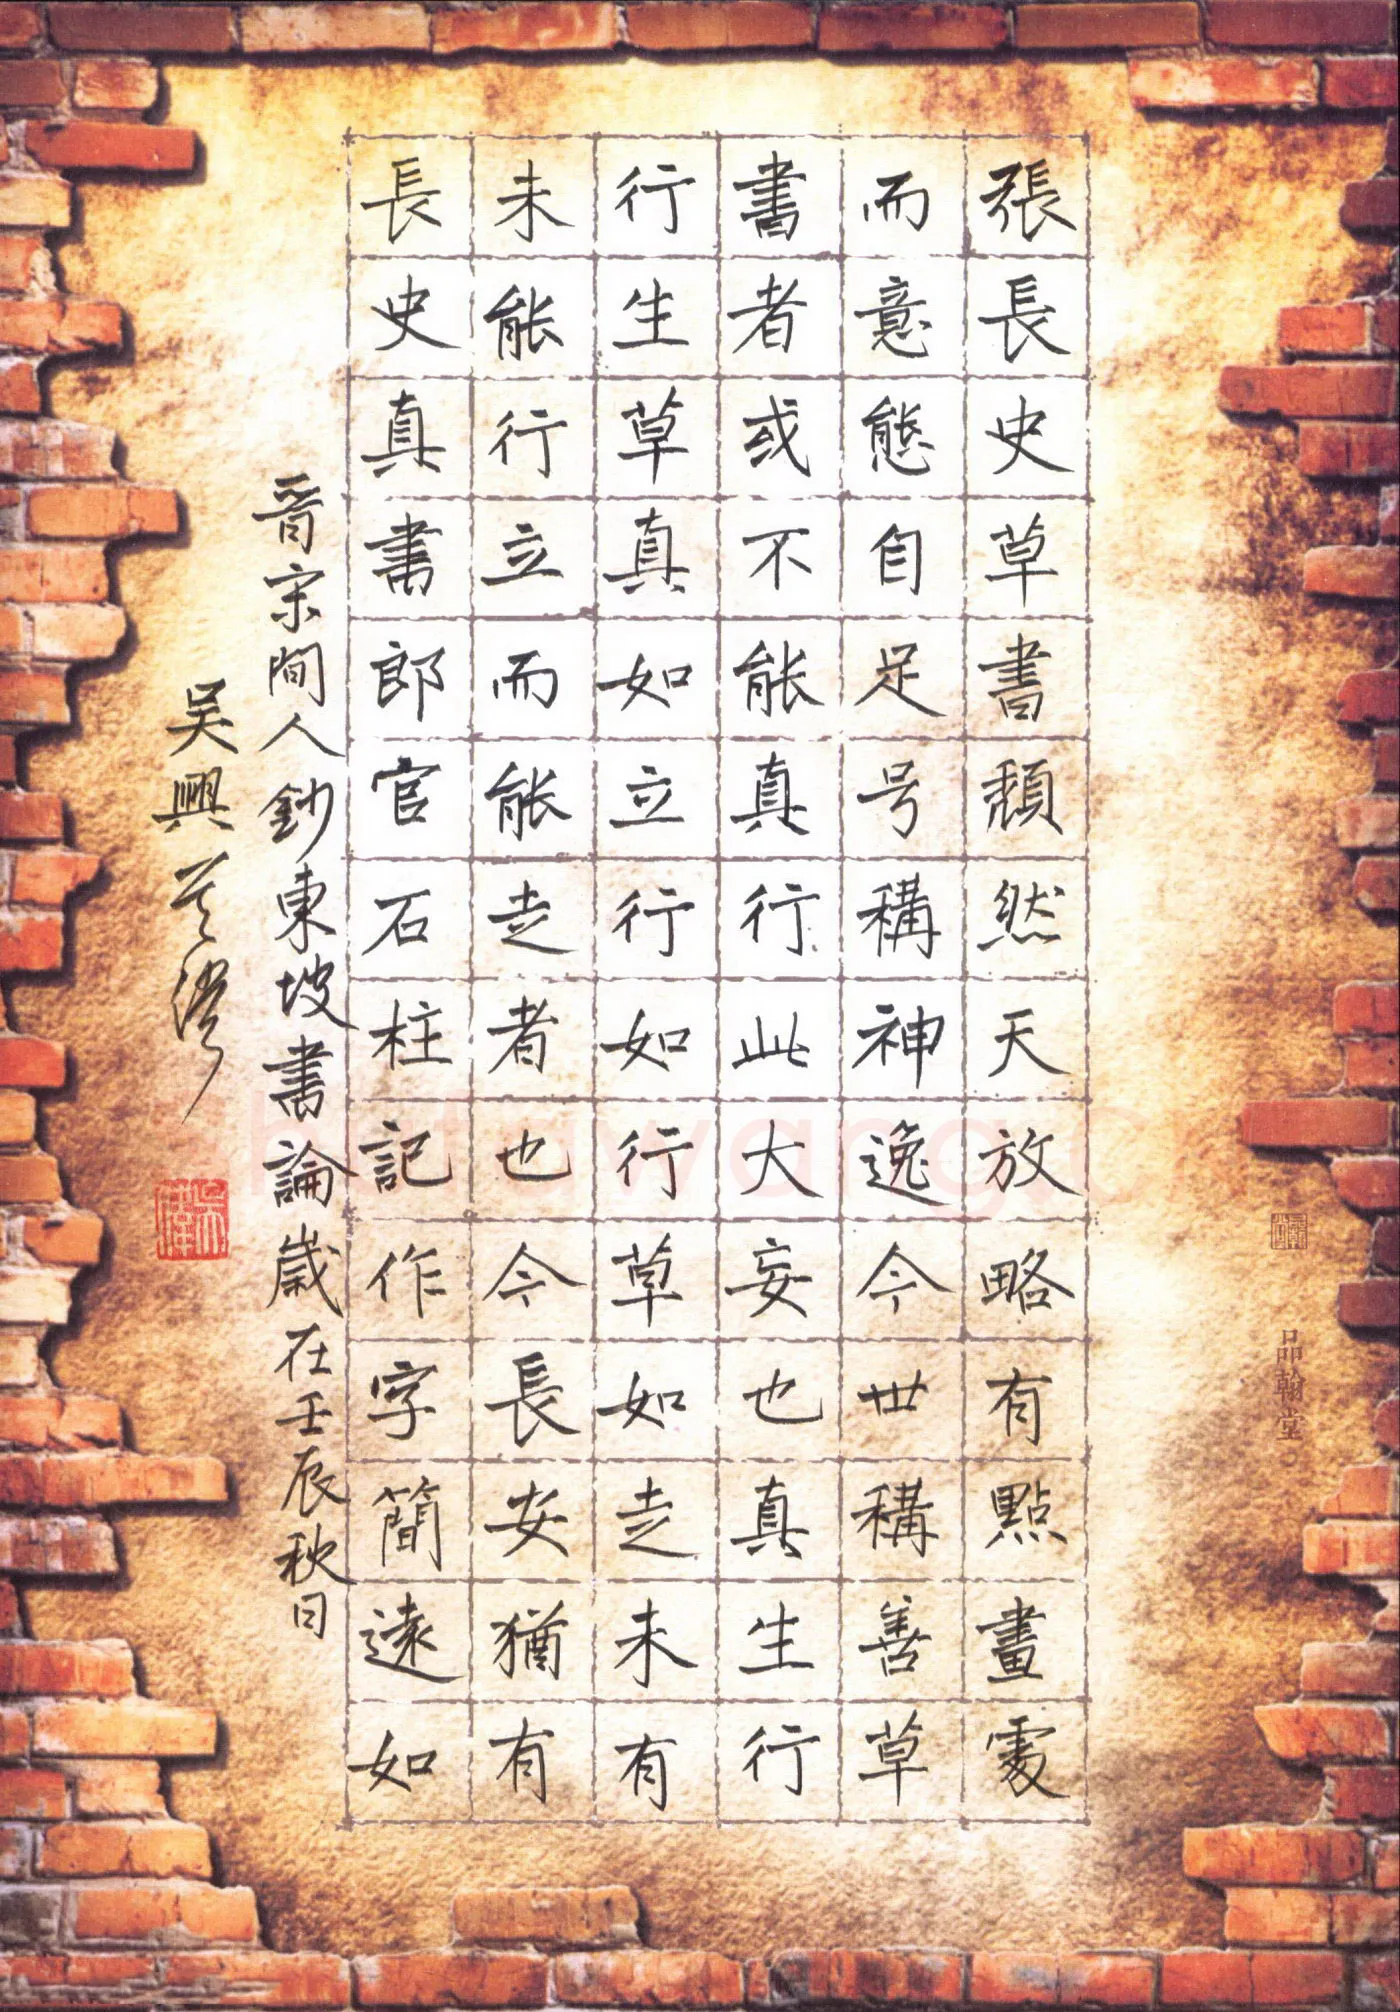 張長史草書頹然天放略有點畫處
而意態自足号稱神逸今世稱善草
書者或不能真行此大妄也真生行
行生草真如立行如行草如走未有
未能行立而能走者也今長安猶有
長史真書郎官石柱記作字簡遠如
晉宋間人鈔東坡書論歲在壬辰秋日
吴興
品翰堂